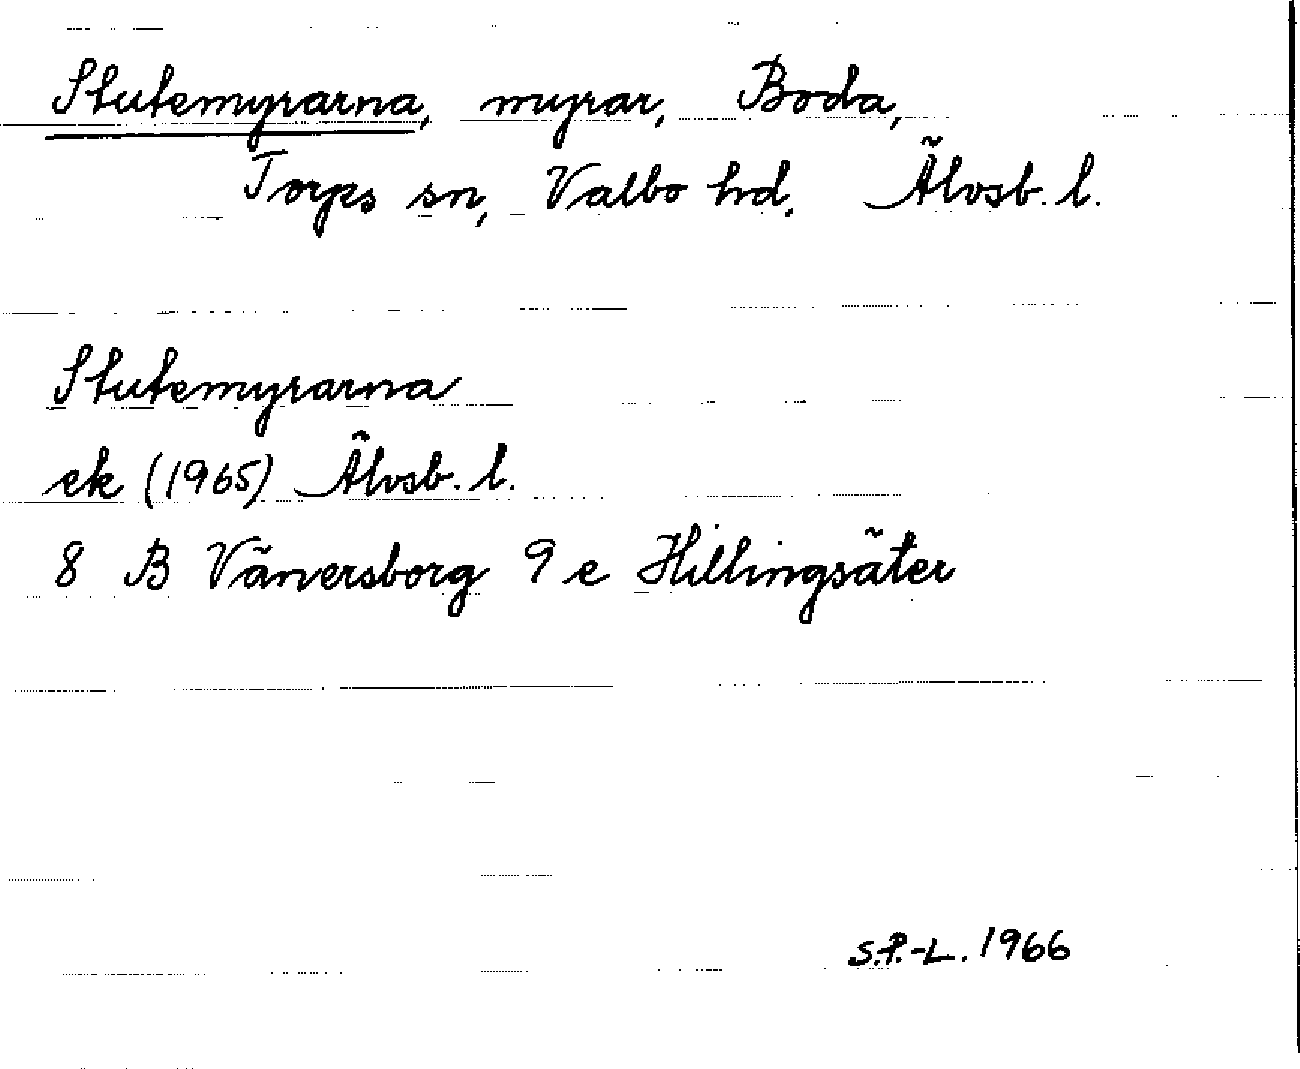 Stutemyrarna, myrar, Boda,
Torps sn, Valbo hd. Älvsb. l.
Stutemyrarna
ek (1965) Älvsb. l.
8 B Vänersborg 9 e Hillingsäter
S.P.-L. 1966